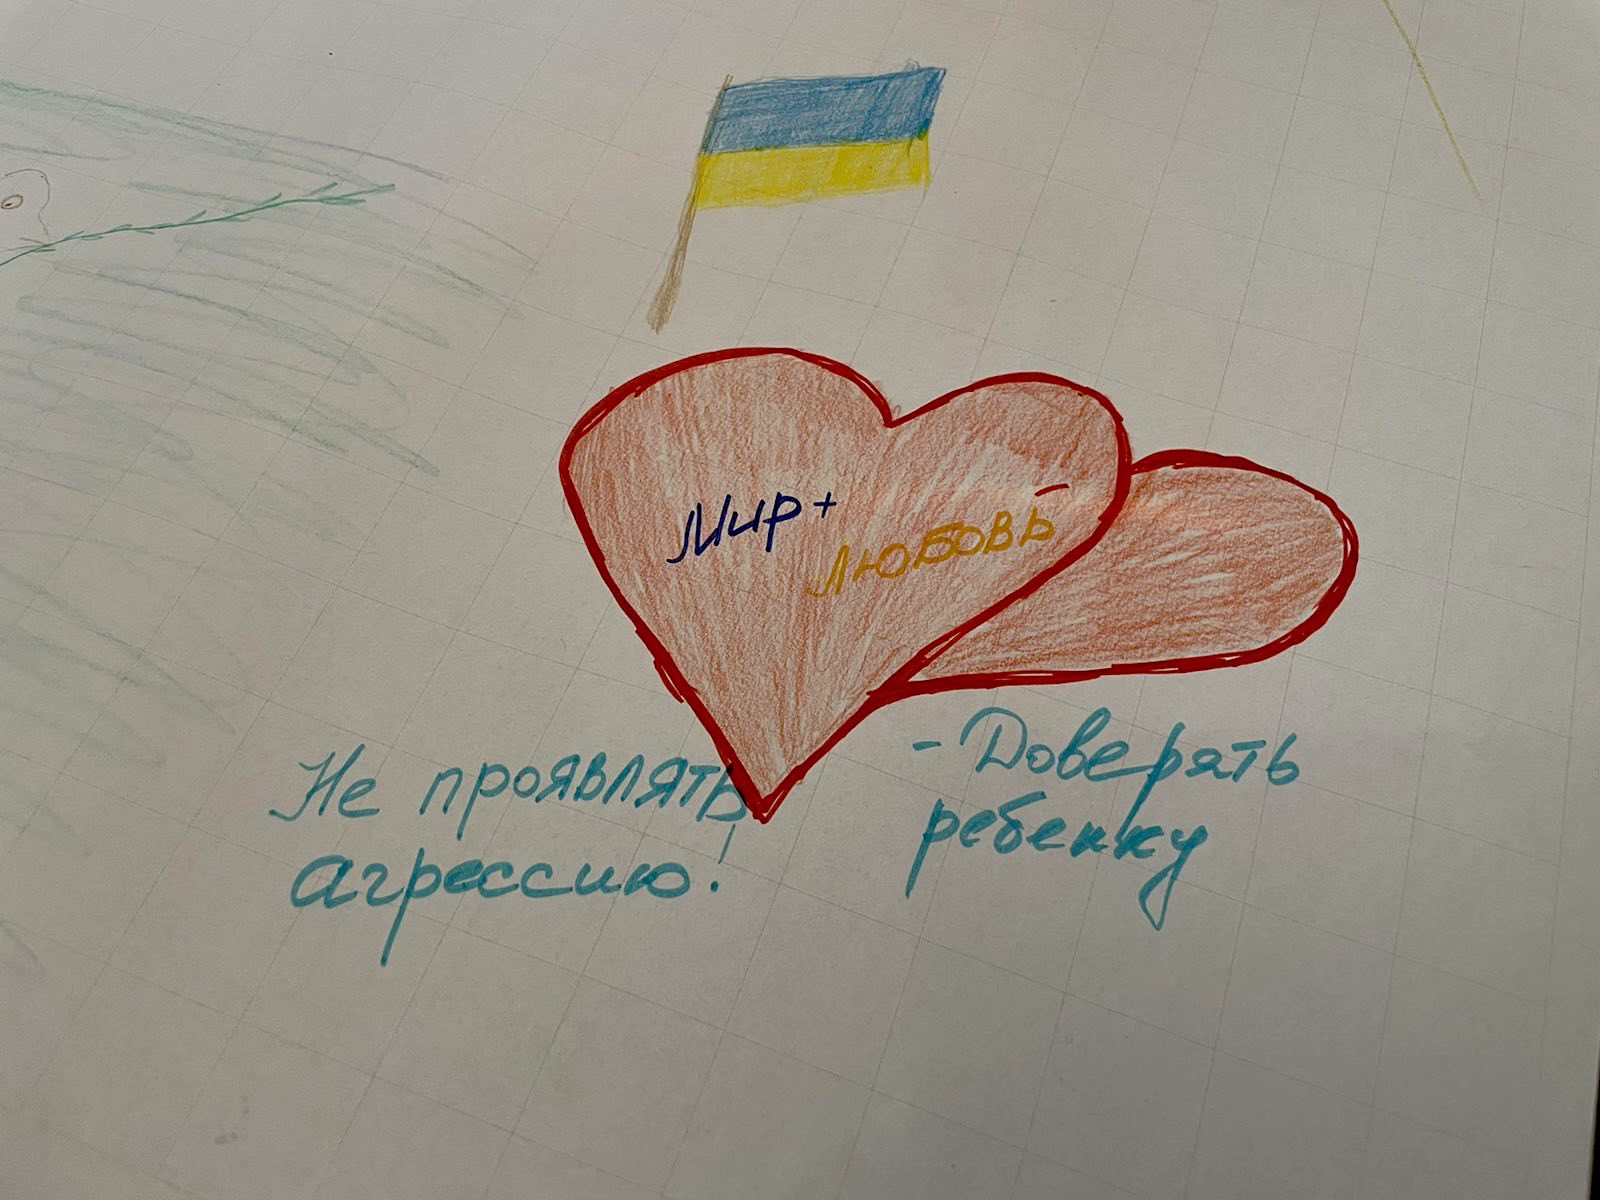 Мир +
ЛЮБОВЬ
Не проявлять
агрессию!
- Доверять
ребенку